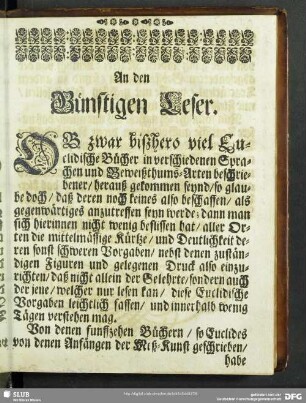 An den
Günstigen Leser.
OB zwar bißhero viel Eu-
clidische Bücher in verschiedenen Spra-
chen und Beweißthums-Arten beschrie-
bener, herauß gekommen seynd/ so glau-
be doch/ daß deren noch keines also beschaffen/ als
gegenwärtiges anzutreffen seyn werde: dann man
sich hierinnen nicht wenig beflissen hat/ aller Or-
ten die mittelmässige Kürtze/ und Deutlichkeit de-
ren sonst schweren Vorgaben/ nebst denen zustän-
digen Figuren und gelegenen Druck also einzu-
richten/ daß nicht allein der Gelehrte/ sondern auch
der jene/ welcher nur lesen kan/ diese Euclidische
Vorgaben leichtlich fassen/ und innerhalb wenig
Tägen verstehen mag.
Von denen funffzehen Büchern/ so Euclides
von denen Anfängen der Meß-Kunst geschrieben/
habe
SLUB
DFG